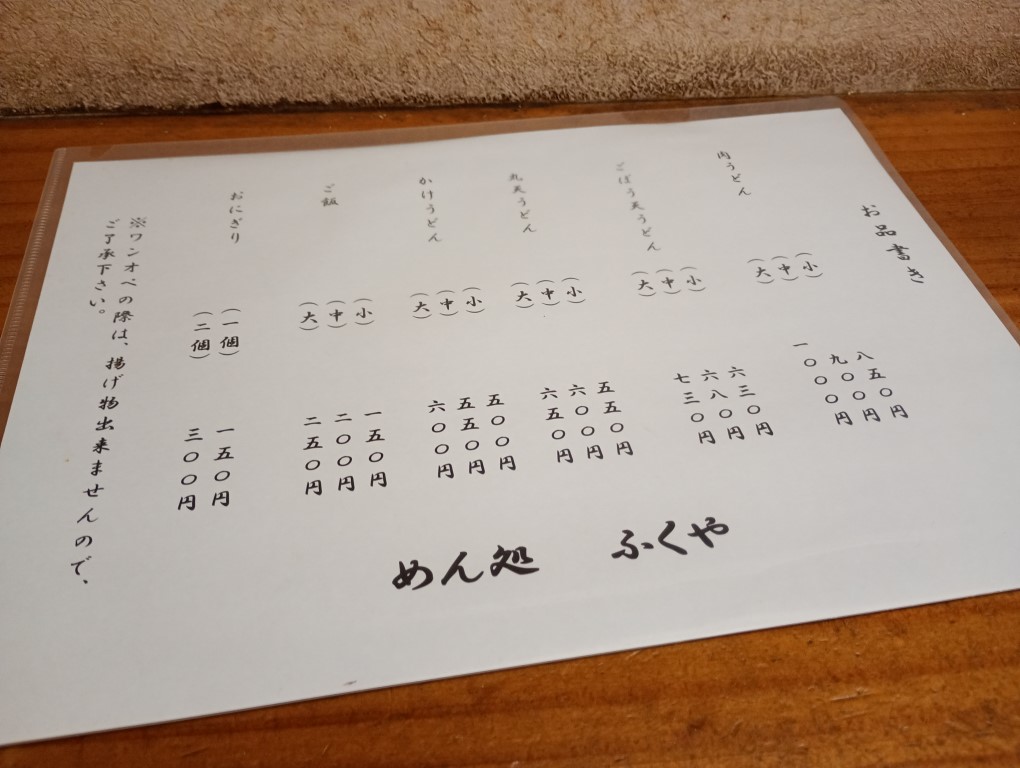 お品書き
肉うどん
(小) 八五〇円
(中) 九〇〇円
(大) 一〇〇〇円
ごぼう天うどん
(小) 六三〇円
(中) 六八〇円
(大) 七三〇円
丸天うどん
(小) 五五〇円
(中) 六〇〇円
(大) 六五〇円
かけうどん
(小) 五〇〇円
(中) 五五〇円
(大) 六〇〇円
ご飯
(小) 一五〇円
(中) 二〇〇円
(大) 二五〇円
おにぎり
(一個) 一五〇円
(二個) 三〇〇円
※ワンオペの際は、揚げ物出来ませんので、
ご了承下さい。
めん処 ふくや